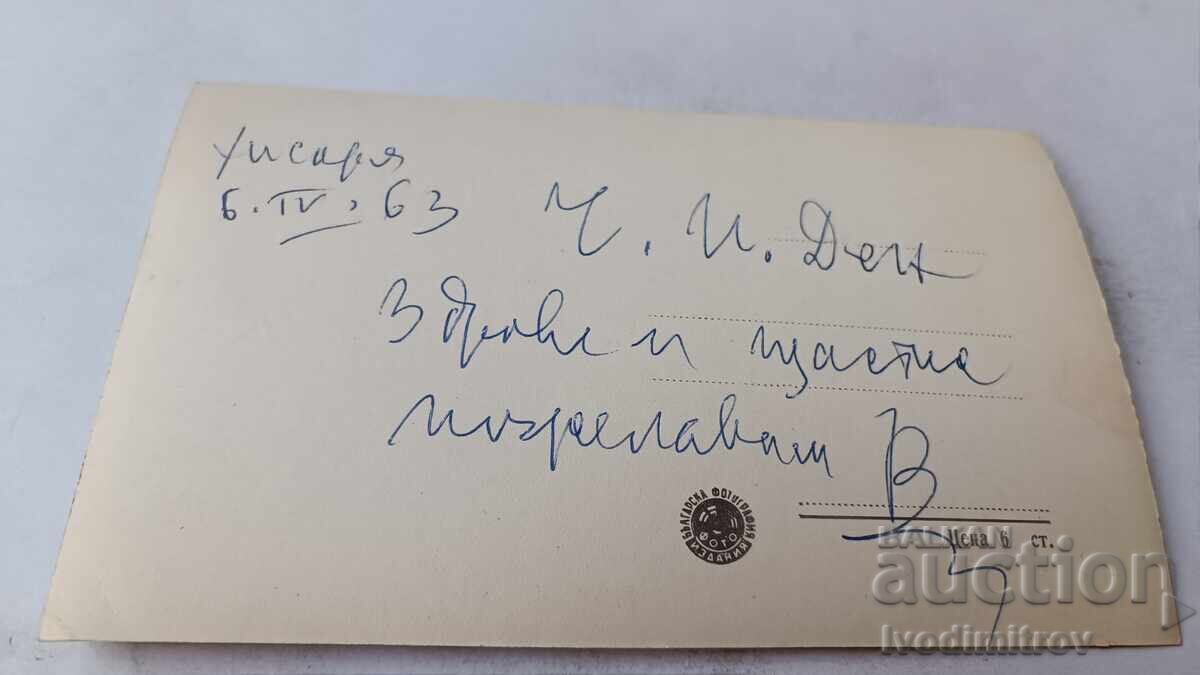 Хисаря
6. IV. 63
Ч. И. Ден
Здраве и щастие
пожелавам В
БЪЛГАРСКА ФОТОГРАФИЯ
ФОТО
ИЗДАНИЯ
Цена 6 ст.
BALKAN
auction
Ivodimitrov